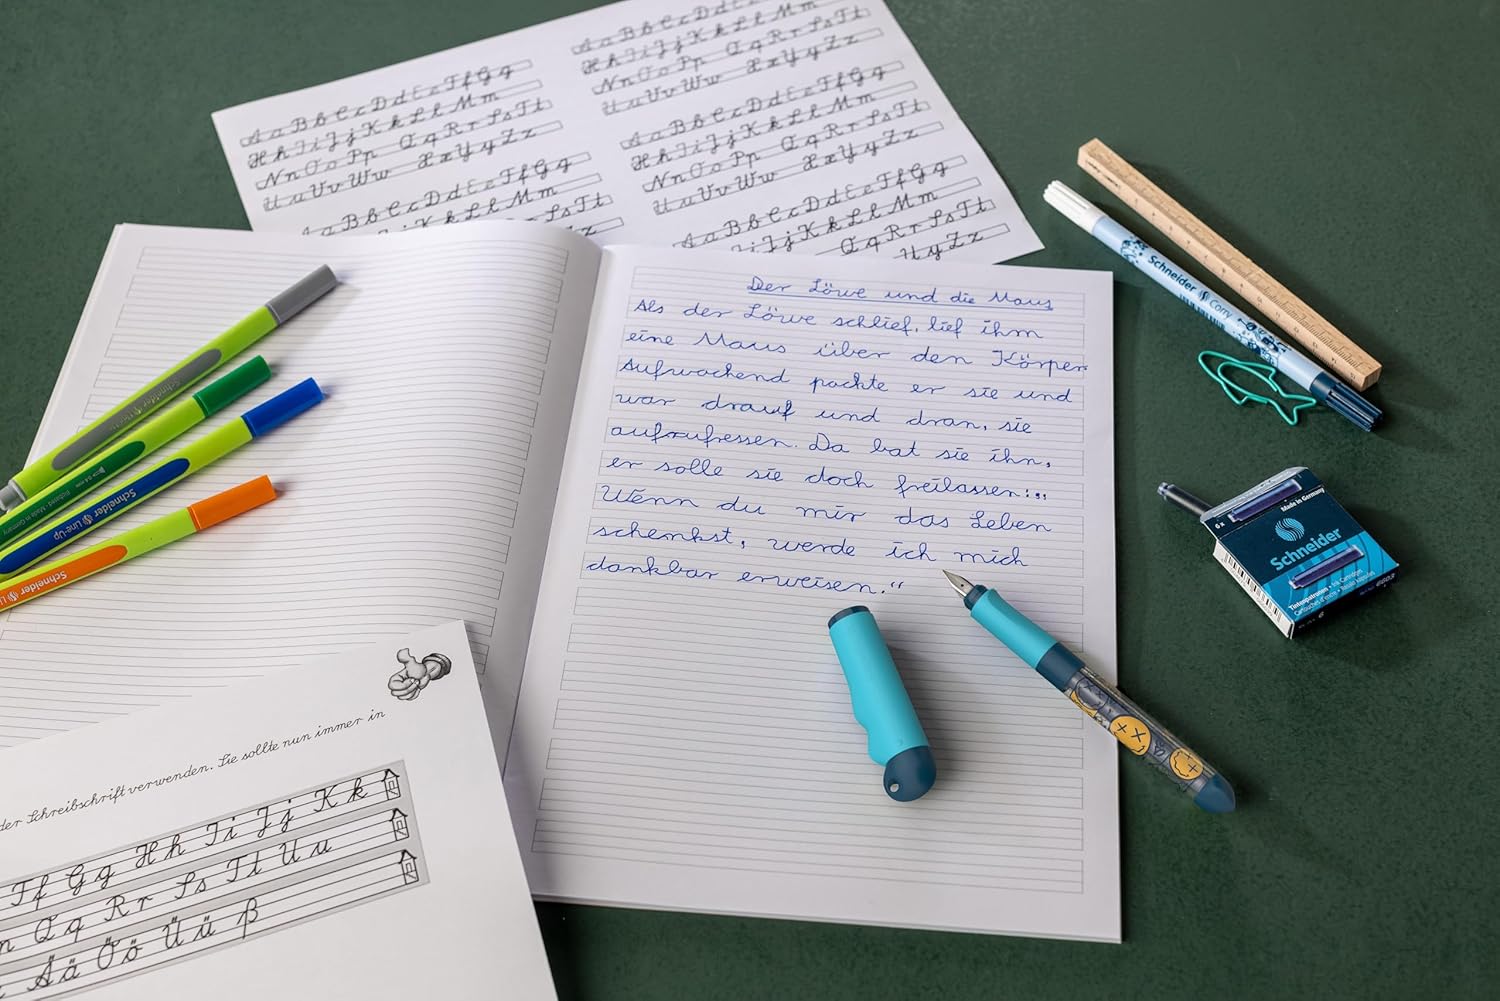 Aa Bb Cc Dd Ee Ff Gg
Hh Ii Jj Kk Ll Mm
Nn Oo Pp Qq Rr Ss Tt
Uu Vv Ww Xx Yy Zz
Aa Bb Cc Dd Ee Ff Gg
Aa Bb Cc Dd Ee Ff Gg
Hh Ii Jj Kk Ll Mm
Nn Oo Pp Qq Rr Ss Tt
Uu Vv Ww Xx Yy Zz
Aa Bb Cc Dd Ee Ff Gg
Hh Ii Jj Kk Ll Mm
Nn Oo Pp Qq Rr Ss Tt
Uu Vv Ww Xx Yy Zz
Aa Bb Cc Dd Ee Ff Gg
Ii Jj Kk Ll Mm
Qq Rr Ss Tt
Yy Zz
Der Löwe und die Maus
Als der Löwe schlief, lief ihm
eine Maus über den Körper
Aufwachend packte er sie und
war drauf und dran, sie
aufzufressen. Da bat sie ihn,
er solle sie doch freilassen:„
Wenn du mir das Leben
schenkst, werde ich mich
dankbar erweisen.“
Schneider Line-Up
Schneider
Schneider Corry
6x
Made in Germany
Schneider
Tintenpatronen • Ink Cartridges
Cartouches d'encre
6603
der Schreibschrift verwenden. Sie sollte nun immer in
Ff Gg Hh Ii Jj Kk
n Qq Rr Ss Tt Uu
Ää Öö Üü ß